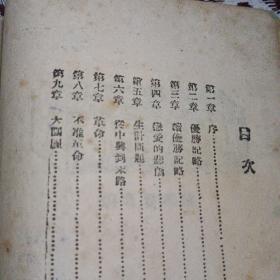 目次
第一章 序
第二章 優勝記略
第三章 續優勝記略
第四章 戀愛的悲劇
第五章 生計問題
第六章 從中興到末路
第七章 革命
第八章 不准革命
第九章 大團圓